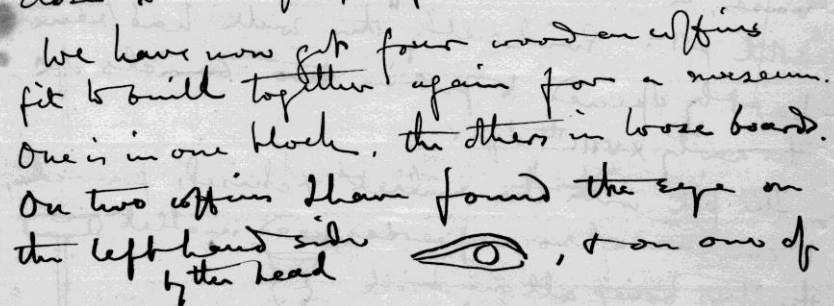 We have now got four wooden coffins
fit to built together again for a museum.
One is in one block, the others in loose boards.
On two coffins I have found the eye on
the left hand side , & on one of
by the head